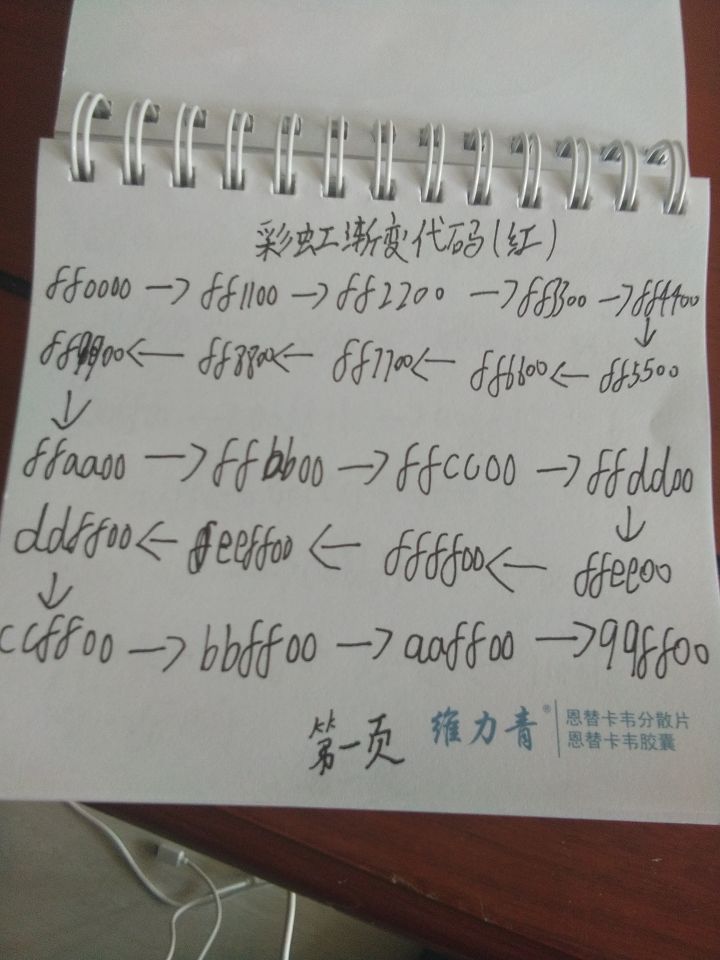 彩虹渐变代码(红)
ff0000 → ff1100 → ff2200 → ff3300 → ff4400
↓
ff9900 ← ff8800 ← ff7700 ← ff6600 ← ff5500
↓
ffaa00 → ffbb00 → ffcc00 → ffdd00
↓
ddff00 ← eeff00 ← ffff00 ← ffee00
↓
ccff00 → bbff00 → aaff00 → 99ff00
第一页
维力青®
恩替卡韦分散片
恩替卡韦胶囊